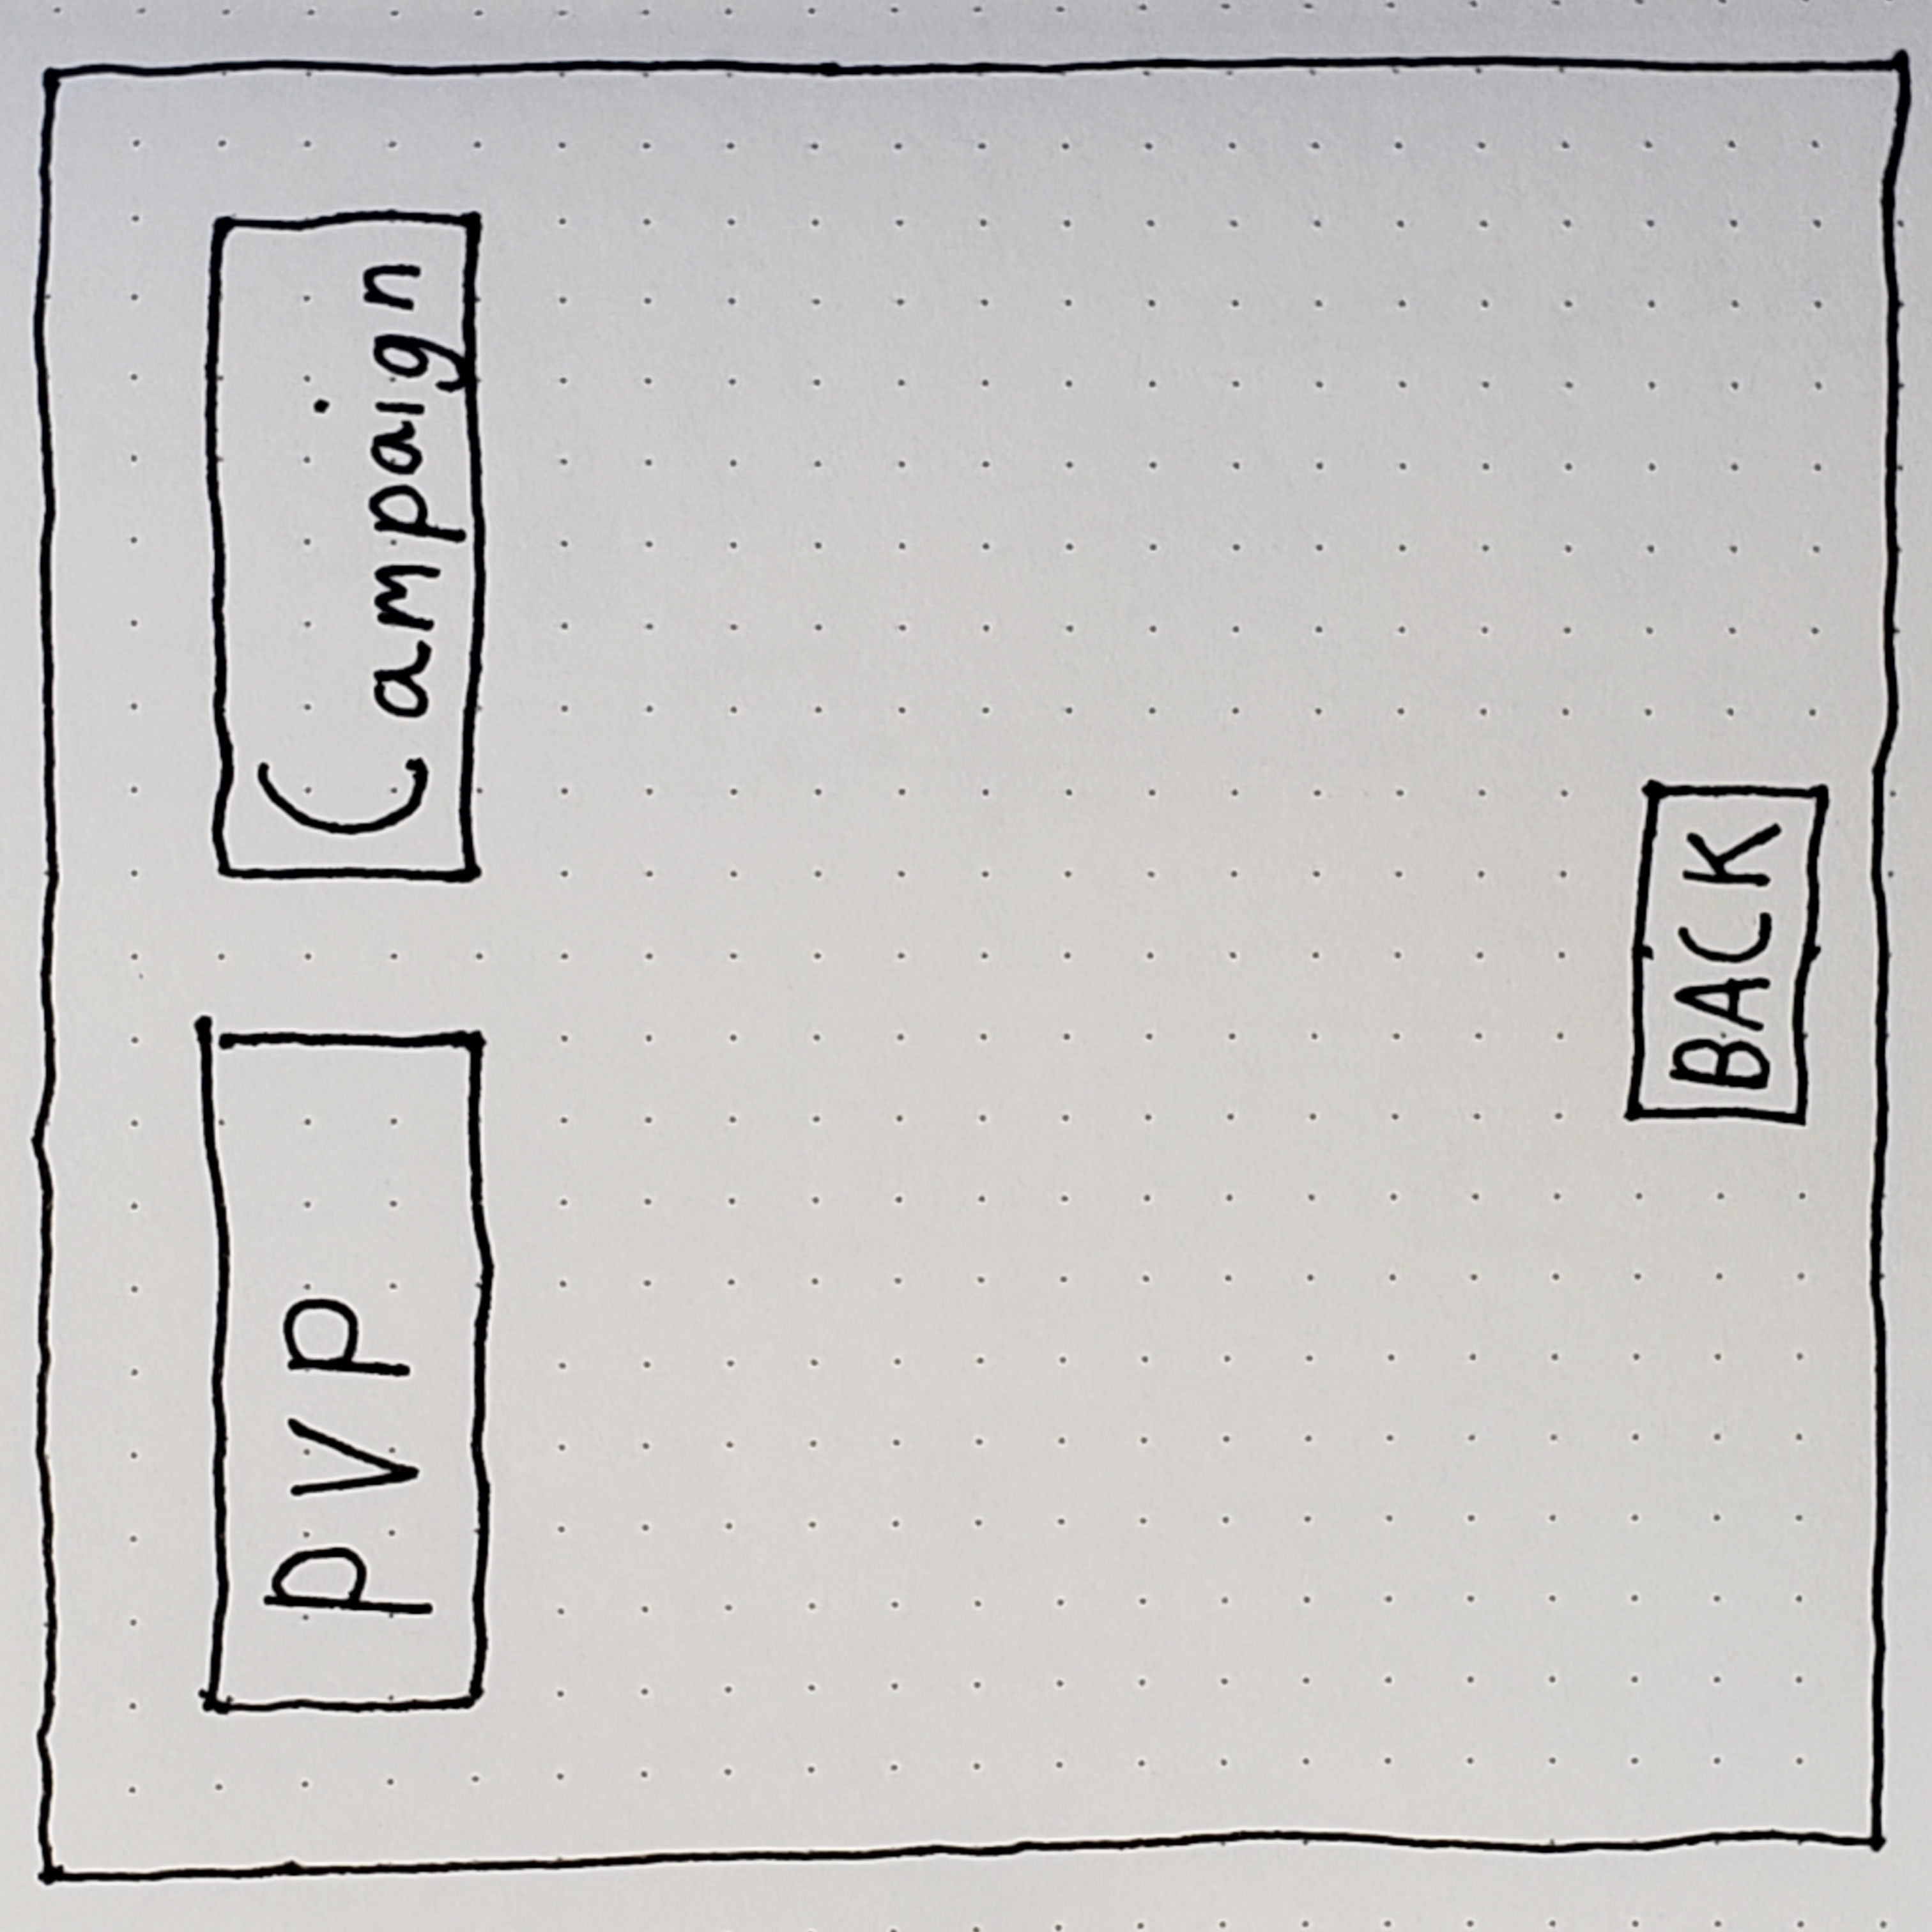 PVP
Campaign
BACK